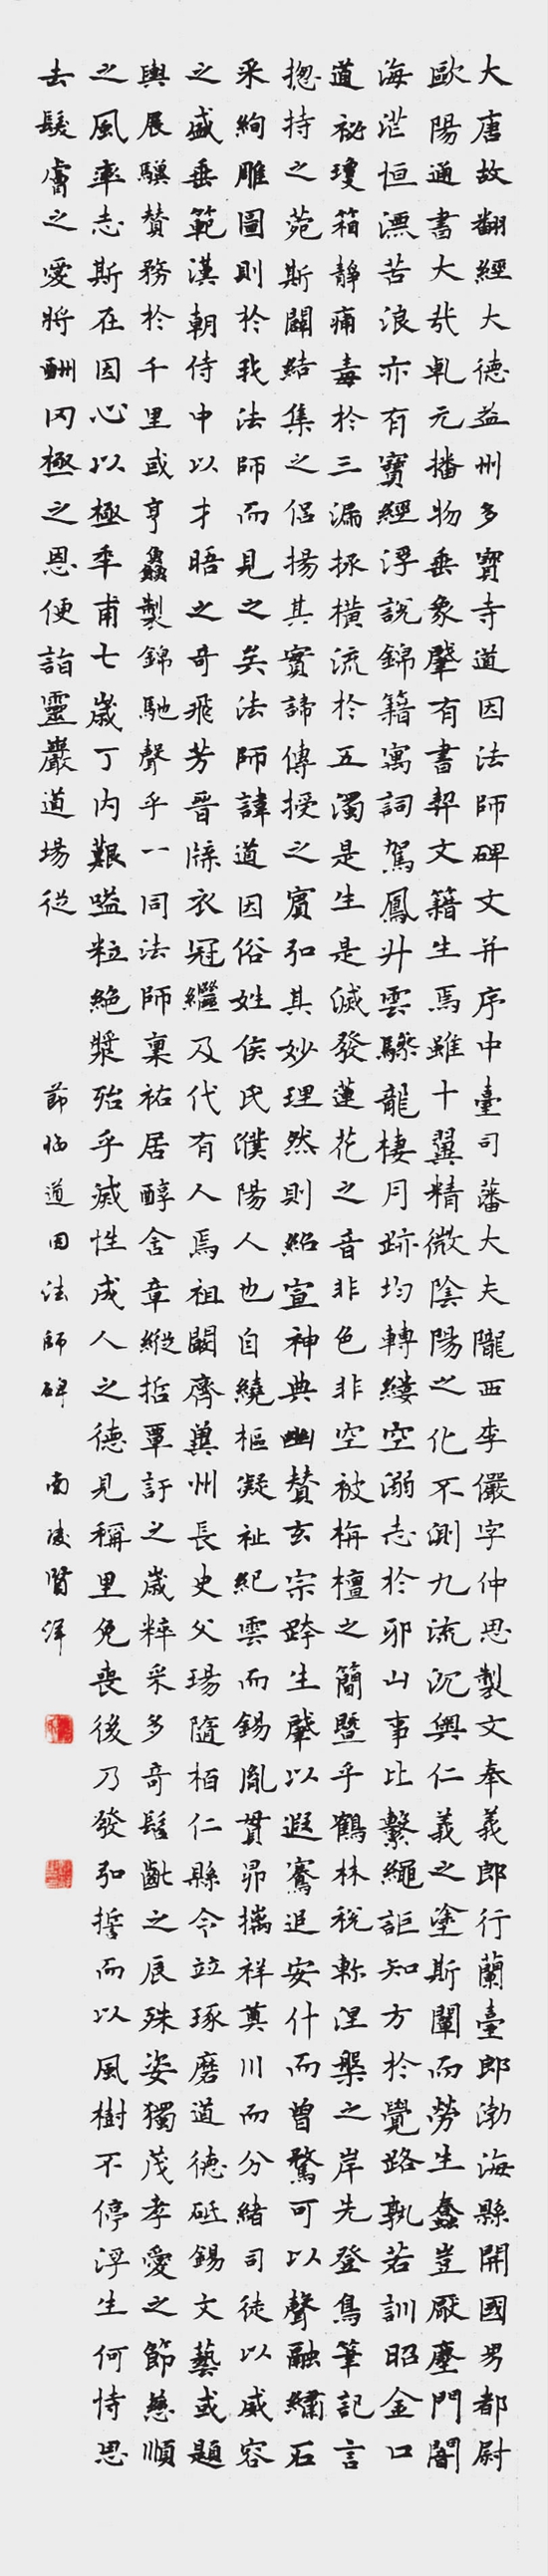 大唐故翻經大德益州多寶寺道因法師碑文并序中臺司藩大夫隴西李儼字仲思製文奉義郎行蘭臺郎渤海縣開國男都尉
歐陽通書大哉乹元播物垂象肇有書契文籍生焉雖十翼精微陰陽之化不測九流沉輿仁義之塗斯闡而勞生蠢蠢豈厭塵門闇
海茫恒漂苦浪亦有寶經浮說錦籍寓詞駕鳳升雲驂龍棲月跡均轉縷空溺志於邪山事比繫繩詎知方於覺路孰若訓昭金口
道祕瓊箱靜痛毒於三漏拯橫流於五濁是生是滅發蓮花之音非色非空被栴檀之簡暨乎鶴林稅軫涅槃之岸先登鳥筆記言
揔持之菀斯闢結集之侶揚其實諦傳授之賓弘其妙理然則紹宣神典幽贊玄宗跨生肇以遐騫追安什而曾騖可以聲融繡石
采絢雕圖則於我法師而見之矣法師諱道因俗姓侯氏濮陽人也自繞樞凝祉紀雲而錫胤貫昴摛祥奠川而分緒司徒以威容
之盛垂範漢朝侍中以才晤之奇飛芳晉牒衣冠繼及代有人焉祖闞齊兾州長史父瑒隨柏仁縣令竝琢磨道德砥錫文藝或題
輿展驥贊務於千里或亨鱻製錦馳聲乎一同法師稟祐居醇舍章縱括覃訏之歲粹采多奇髫齓之辰殊姿獨茂孝愛之節慈順
之風率志斯在因心以極年甫七歲丁內艱嗌粒絕漿殆乎滅性成人之德見稱里免喪後乃發弘誓而以風樹不停浮生何恃思
去髮膚之愛將酬冈極之恩便詣靈巖道場從 節臨道因法師碑 南陵賢澤